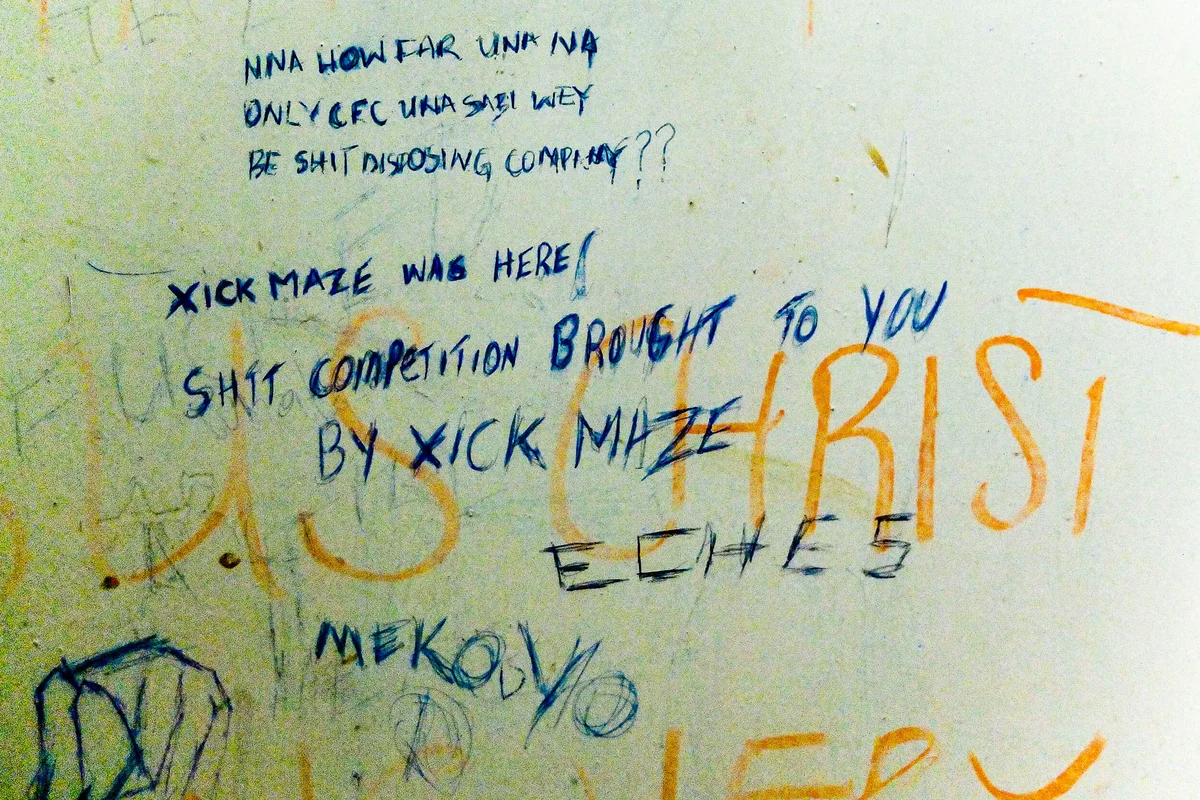 NNA HOW FAR UNA NA
ONLY CFC UNA SABI WEY
BE SHIT DISPOSING COMPANY??
XICK MAZE WAS HERE!
SHIT COMPETITION BROUGHT TO YOU
BY XICK MAZE
US CHRIST
ECHES
VERY